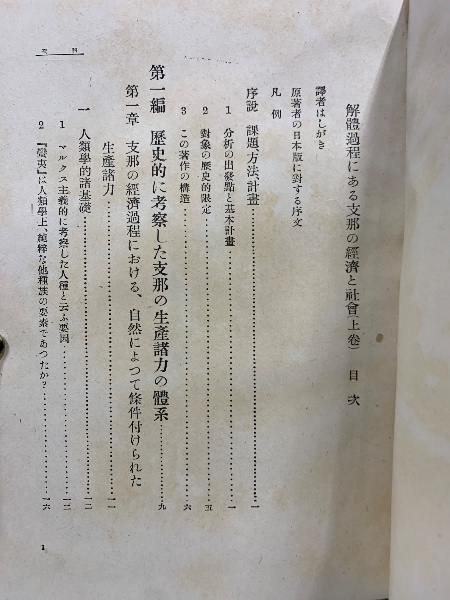 解體過程にある支那の經濟と社會(上卷) 目次
譯者はしがき
原著者の日本版に對する序文
凡例
序說 課題、方法、計畫……一
1 分析の出發點と基本計畫……一
2 對象の歷史的限定……五
3 この著作の構造……六
第一編 歷史的に考察した支那の生產諸力の體系……九
第一章 支那の經濟過程における、自然によつて條件付けられた
生產諸力……一一
一 人類學的諸基礎……一二
1 マルクス主義的に考察した人種と云ふ要因……一二
2 『蠻夷』は人類學上、純粹な他種族の要素であつたか?……一六
目次
1